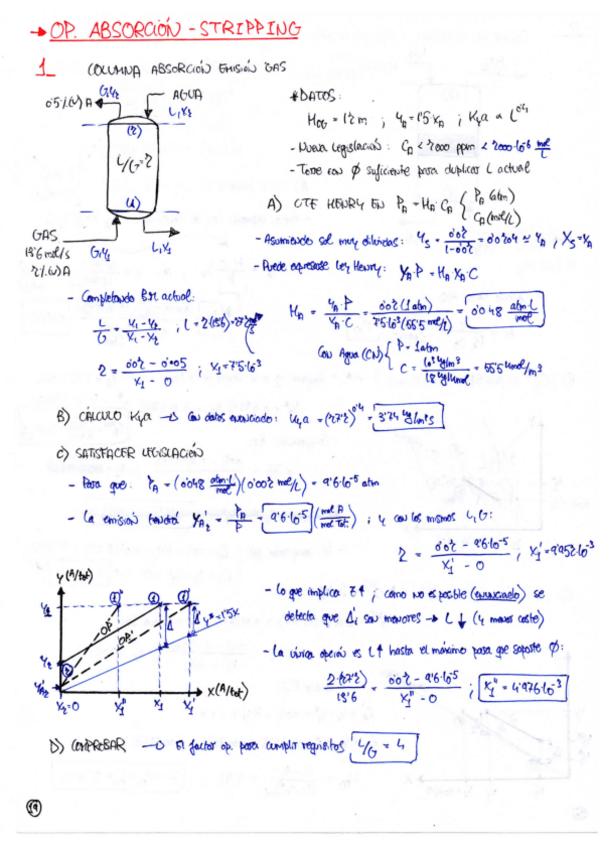 → OP. ABSORCIÓN - STRIPPING
1_ COLUMNA ABSORCIÓN EMISIÓN GAS
0'5%(v) A
G,y₂
AGUA
L,x₂
(2)
L/G=2
(1)
GAS
13'6 mol/s
2%(v) A
G,y₁
L,x₁
* DATOS:
H_OG = 1'2 m ; y_A = 1'5·x_A ; K_ya ∝ L^0'4
- Nueva legislación: C_A < 2000 ppm < 2000·10⁻⁶ mol/L
- Torre con Ø suficiente para duplicar L actual
A) CTE HENRY EN P_A = H_A·C_A { P_A (atm)
C_A (mol/L)
- Asumiendo sol. muy diluidas: Y_S = 0'02/(1-0'02) = 0'0204 ≃ y_A , X_S = X_A
- Puede expresarse ley Henry: y_A·P = H_A·X_A·C
H_A = y_A·P/(X_A·C) = 0'02 (1 atm)/(7'5·10⁻³ (55'5 mol/L)) = 0'048 atm·L/mol
Con Agua (CN) { P = 1 atm
C = 10³ kg/m³ / 18 kg/kmol = 55'5 kmol/m³
- Completando B.M. actual:
L/G = (y₁ - y₂)/(x₁ - x₂) ; L = 2(13'6) = 27'2 mol/s
2 = (0'02 - 0'005)/(x₁ - 0) ; x₁ = 7'5·10⁻³
B) CÁLCULO K_ya → Con datos enunciado: K_ya = (27'2)^0'4 = 3'74 kg/m³s
C) SATISFACER LEGISLACIÓN
- Para que: P_A = (0'048 atm·L/mol)(0'002 mol/L) = 9'6·10⁻⁵ atm
- La emisión tendrá y'_A₂ = P_A/P = 9'6·10⁻⁵ (mol A/mol Tot.) ; y con los mismos L,G:
2 = (0'02 - 9'6·10⁻⁵)/(x₁' - 0) ; x₁' = 9'952·10⁻³
- Lo que implica Z↑ ; como no es posible (enunciado) se
detecta que Δ'i son menores → L↓ (y menor coste)
- La única opción es L↑ hasta el máximo para que soporte Ø:
2·(27'2)/13'6 = (0'02 - 9'6·10⁻⁵)/(x₁'' - 0) ; x₁'' = 4'976·10⁻³
y (A/tot)
y₁
y₂
y'_A₂
x₂=0
x₁''
x₁
x₁'
x (A/tot)
OP''
OP'
(1)
(1)
(1)
(2)
Δ
Δ'
y*=1'5x
D) COMPROBAR → El factor op. para cumplir requisitos L/G = 4
19